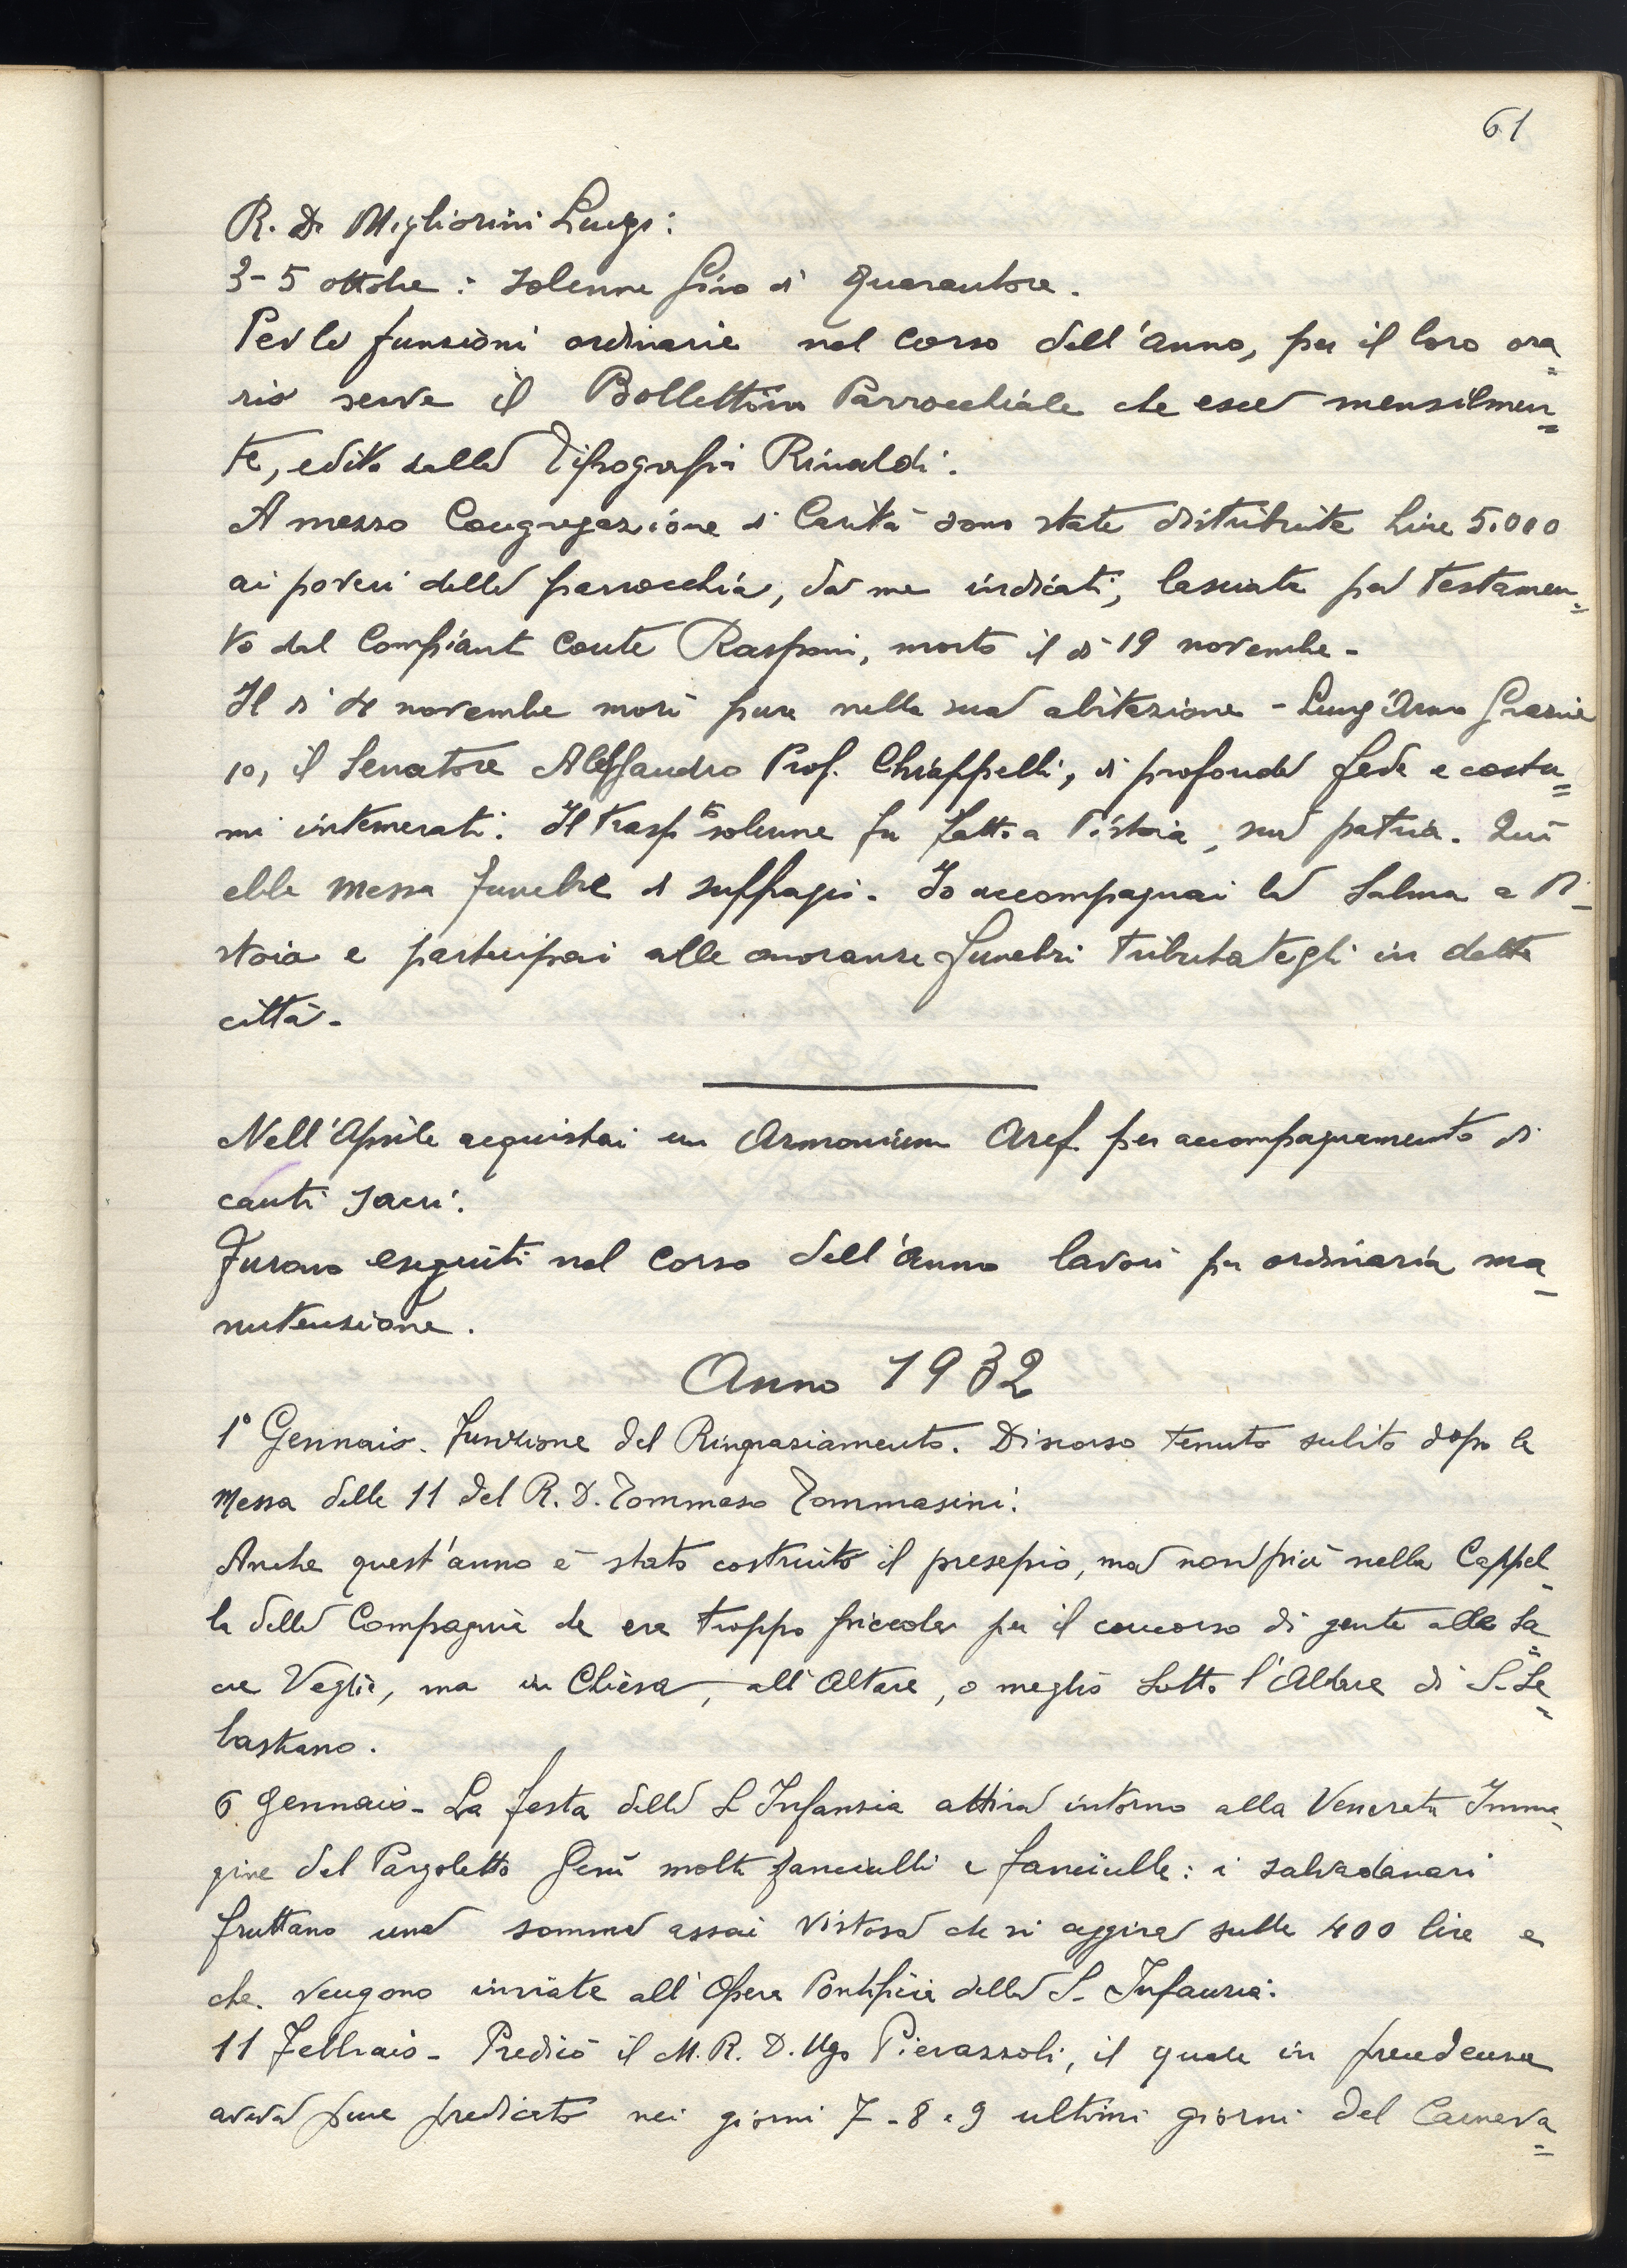 61
R. D. Migliorini Luigi:
3-5 ottobre: solenne Giro di Quarantore.
Per le funzioni ordinarie nel corso dell'anno, per il loro ora=
rio serve il Bollettino Parrocchiale che esce mensilmen=
te, edito dalla Tipografia Rinaldi.
A mezzo Congregazione di Carità sono state distribuite Lire 5.000
ai poveri della parrocchia, da me indicati, lasciate per testamen=
to dal Compianto Conte Rasponi, morto il dì 19 novembre.
Il dì novembre morì pure nella sua abitazione - Lung'Arno Grazie
10, il Senatore Alessandro Prof. Chiappelli, di profonda fede e costu=
mi intemerati. Il trasp.to solenne fu fatto a Pistoia, sua patria. Qui
ebbe Messa funebre di suffragio. Io accompagnai la Salma a Pi-
stoia e partecipai alle onoranze funebri tributategli in detta
città.
Nell'Aprile acquistai un Armonium Aref. per accompagnamento di
canti sacri.
Furono eseguiti nel corso dell'anno lavori per ordinaria ma-
nutenzione.
Anno 1932
1° Gennaio. Funzione del Ringraziamento. Discorso tenuto subito dopo la
Messa delle 11 del R. D. Tommaso Tommasini.
Anche quest'anno è stato costruito il presepio, ma non più nella Cappel-
la della Compagnia che era troppo piccola per il concorso di gente alla Sa=
cra Veglia, ma in Chiesa, all'Altare, o meglio sotto l'Altare di S. Se=
bastiano.
6 Gennaio - La festa della S. Infanzia attira intorno alla Venerata Imma-
gine del Pargoletto Gesù molti fanciulli e fanciulle: i salvadanari
fruttano una somma assai vistosa che si aggira sulle 400 lire e
che vengono inviate all'Opera Pontificia della S. Infanzia.
11 Febbraio - Predicò il M. R. D. Ugo Pierazzoli, il quale in precedenza
aveva pure predicato nei giorni 7-8 e 9 ultimi giorni del Carneva=